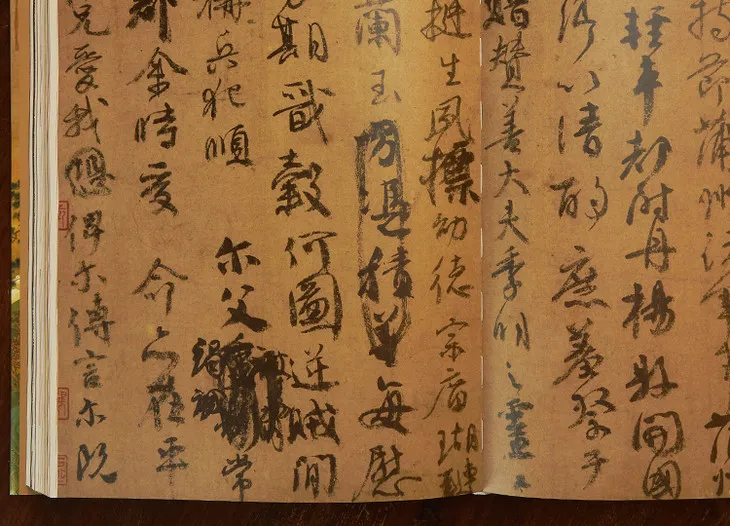 持節蒲州諸軍事蒲州
輕車都尉丹楊縣開國
卿以清酌庶羞祭于
贈贊善大夫季明之靈曰
挺生夙標幼德宗廟瑚璉
蘭玉方憑積善每慰
期戩穀何圖逆賊間
稱兵犯順爾父常
郡余時受命亦在平
兄愛我恐俾爾傳言爾既